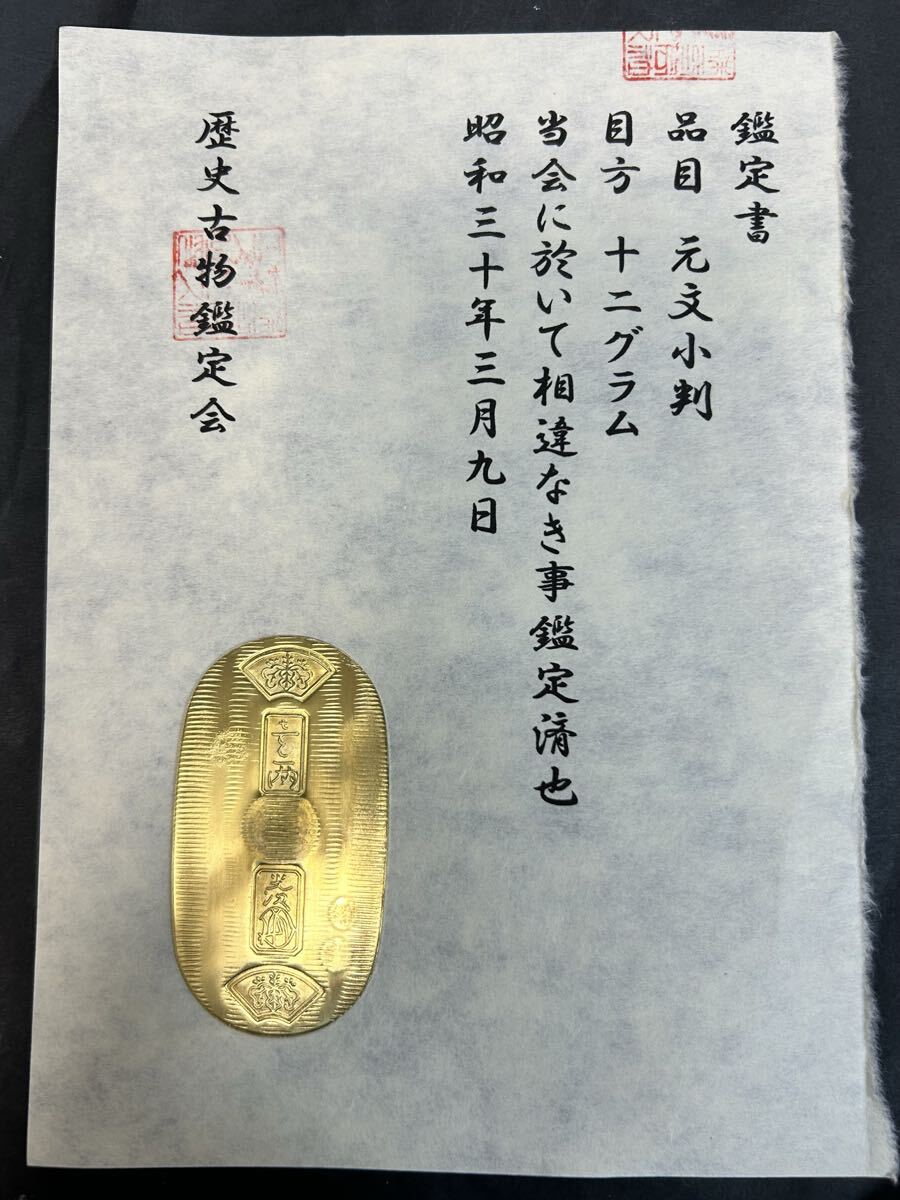 鑑定書
品目 元文小判
目方 十二グラム
当会に於いて相違なき事鑑定済也
昭和三十年三月九日
歴史古物鑑定会